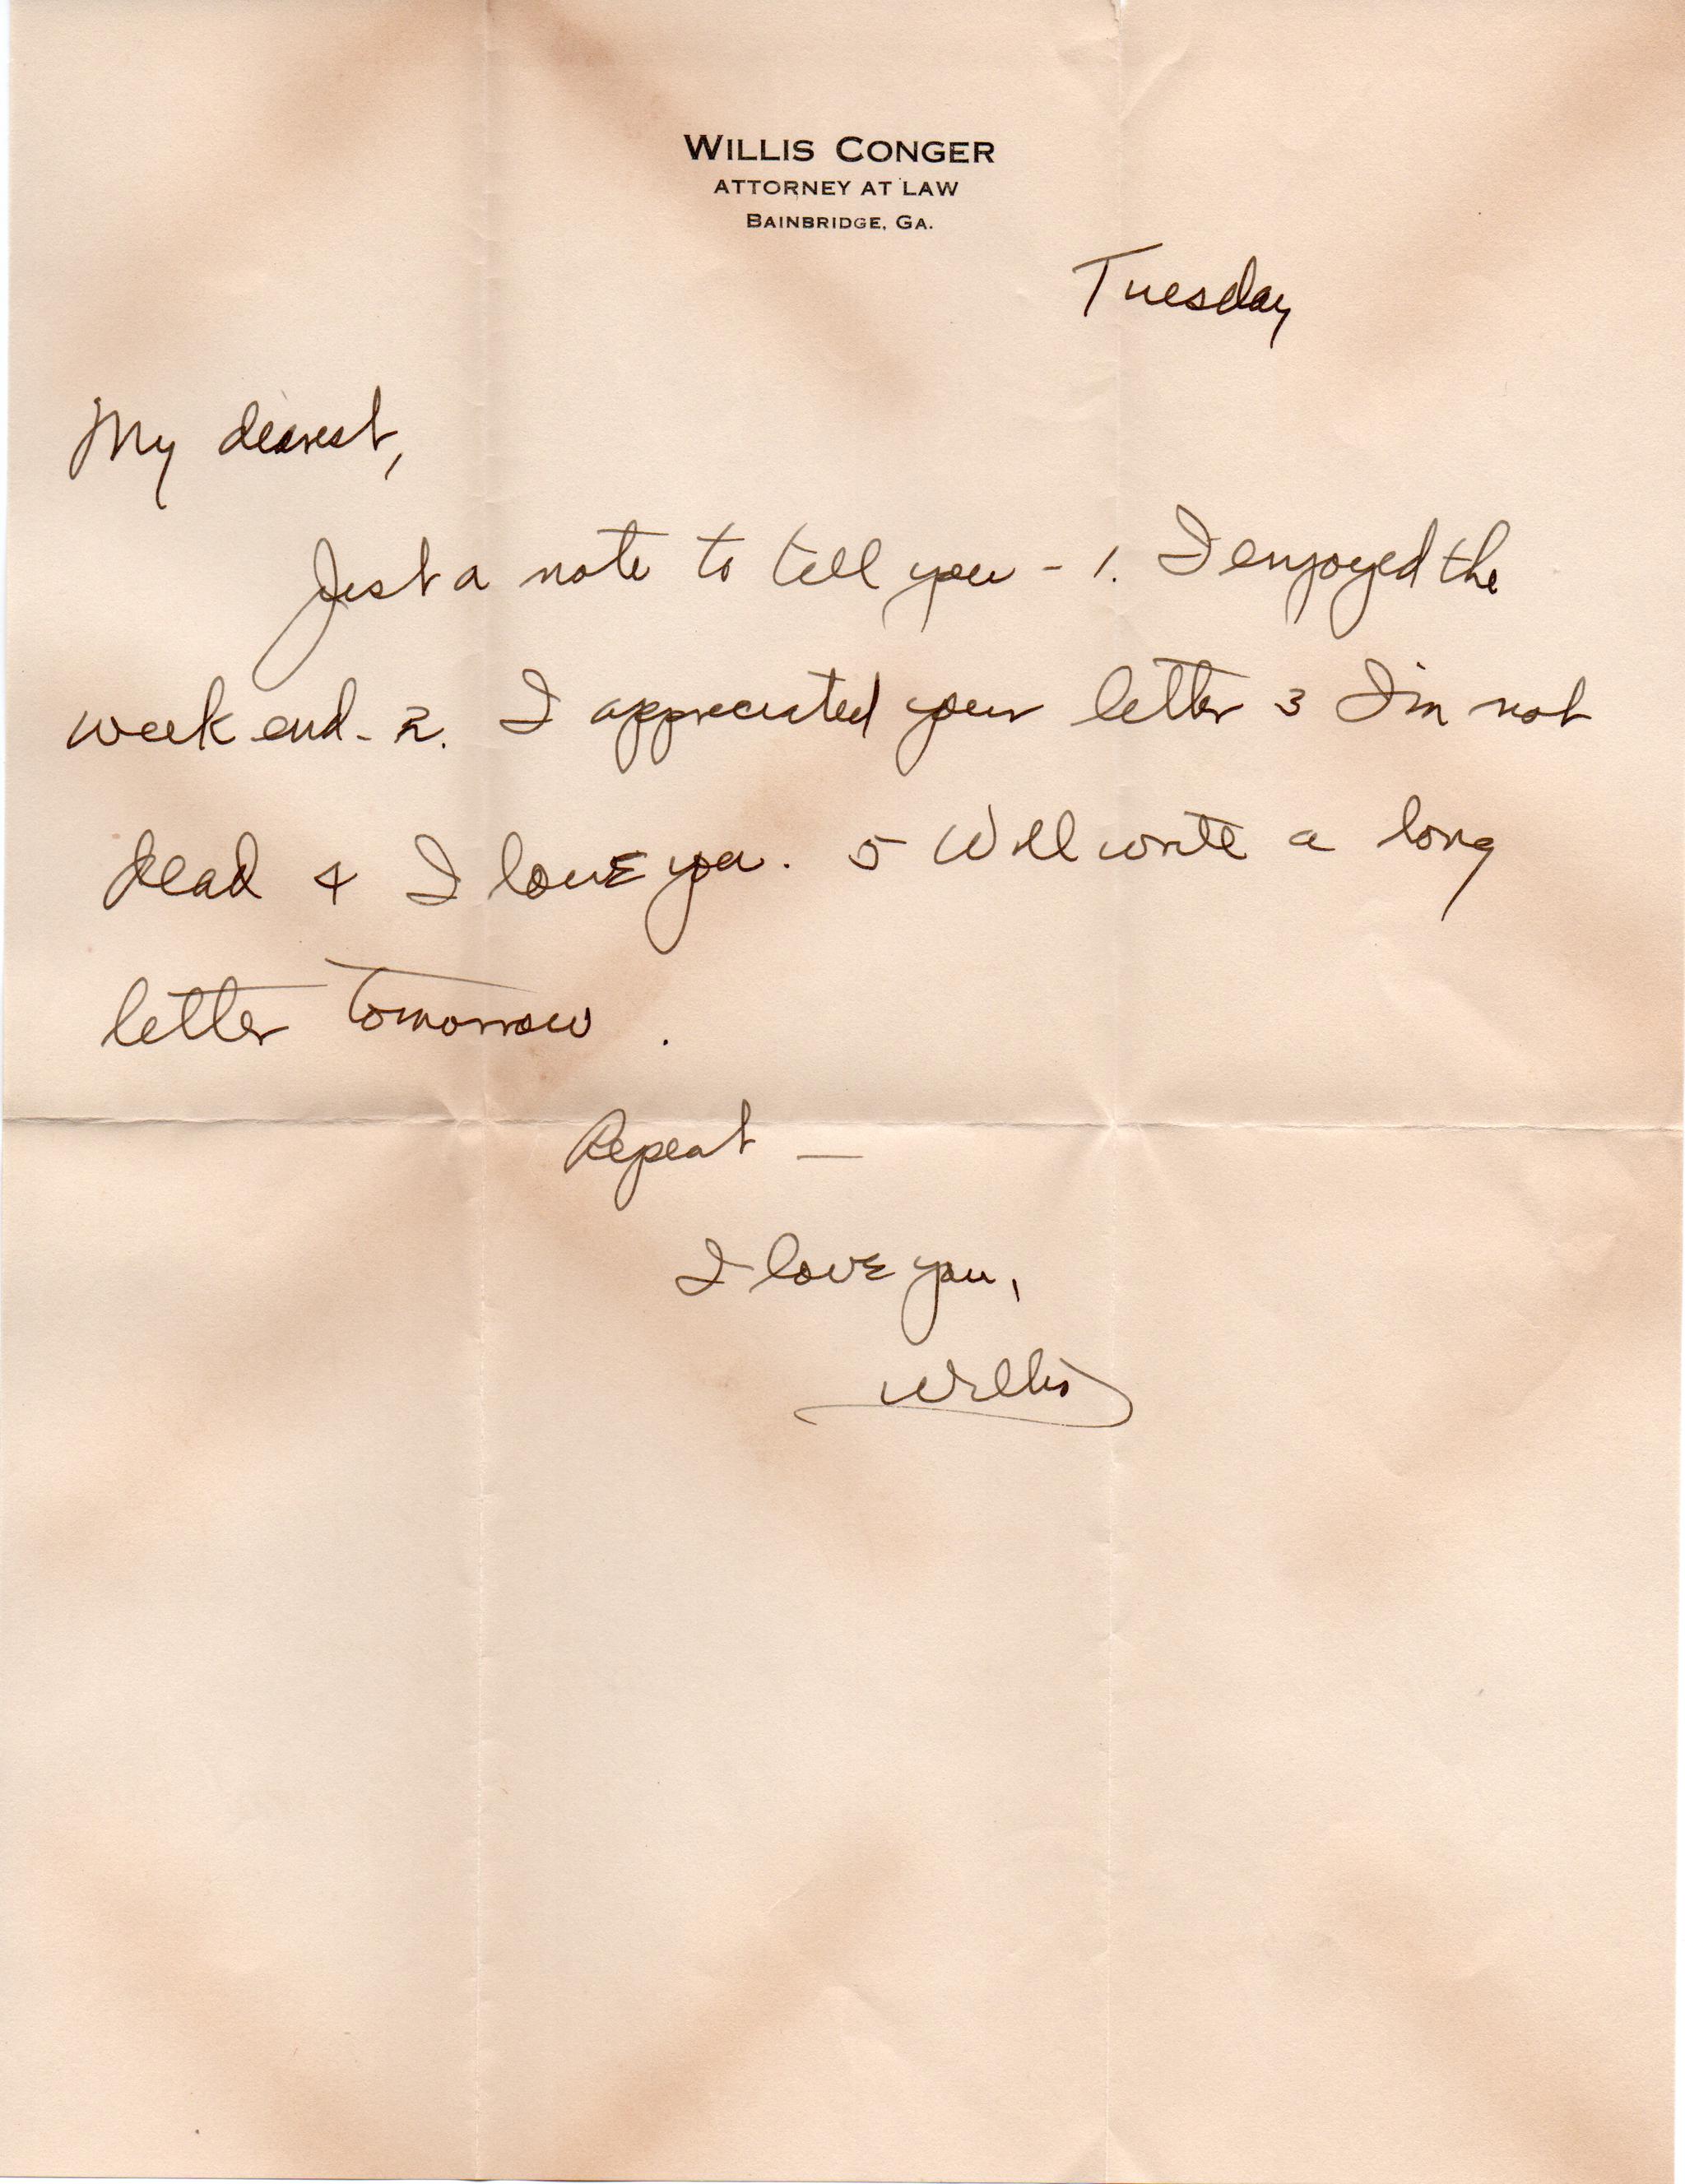 WILLIS CONGER
ATTORNEY AT LAW
BAINBRIDGE, GA.
Tuesday
My dearest,
Just a note to tell you - 1. I enjoyed the
week end - 2. I appreciated your letter 3 I'm not
dead 4 I love you. 5 Will write a long
letter tomorrow.
Repeat —
I love you,
Willis